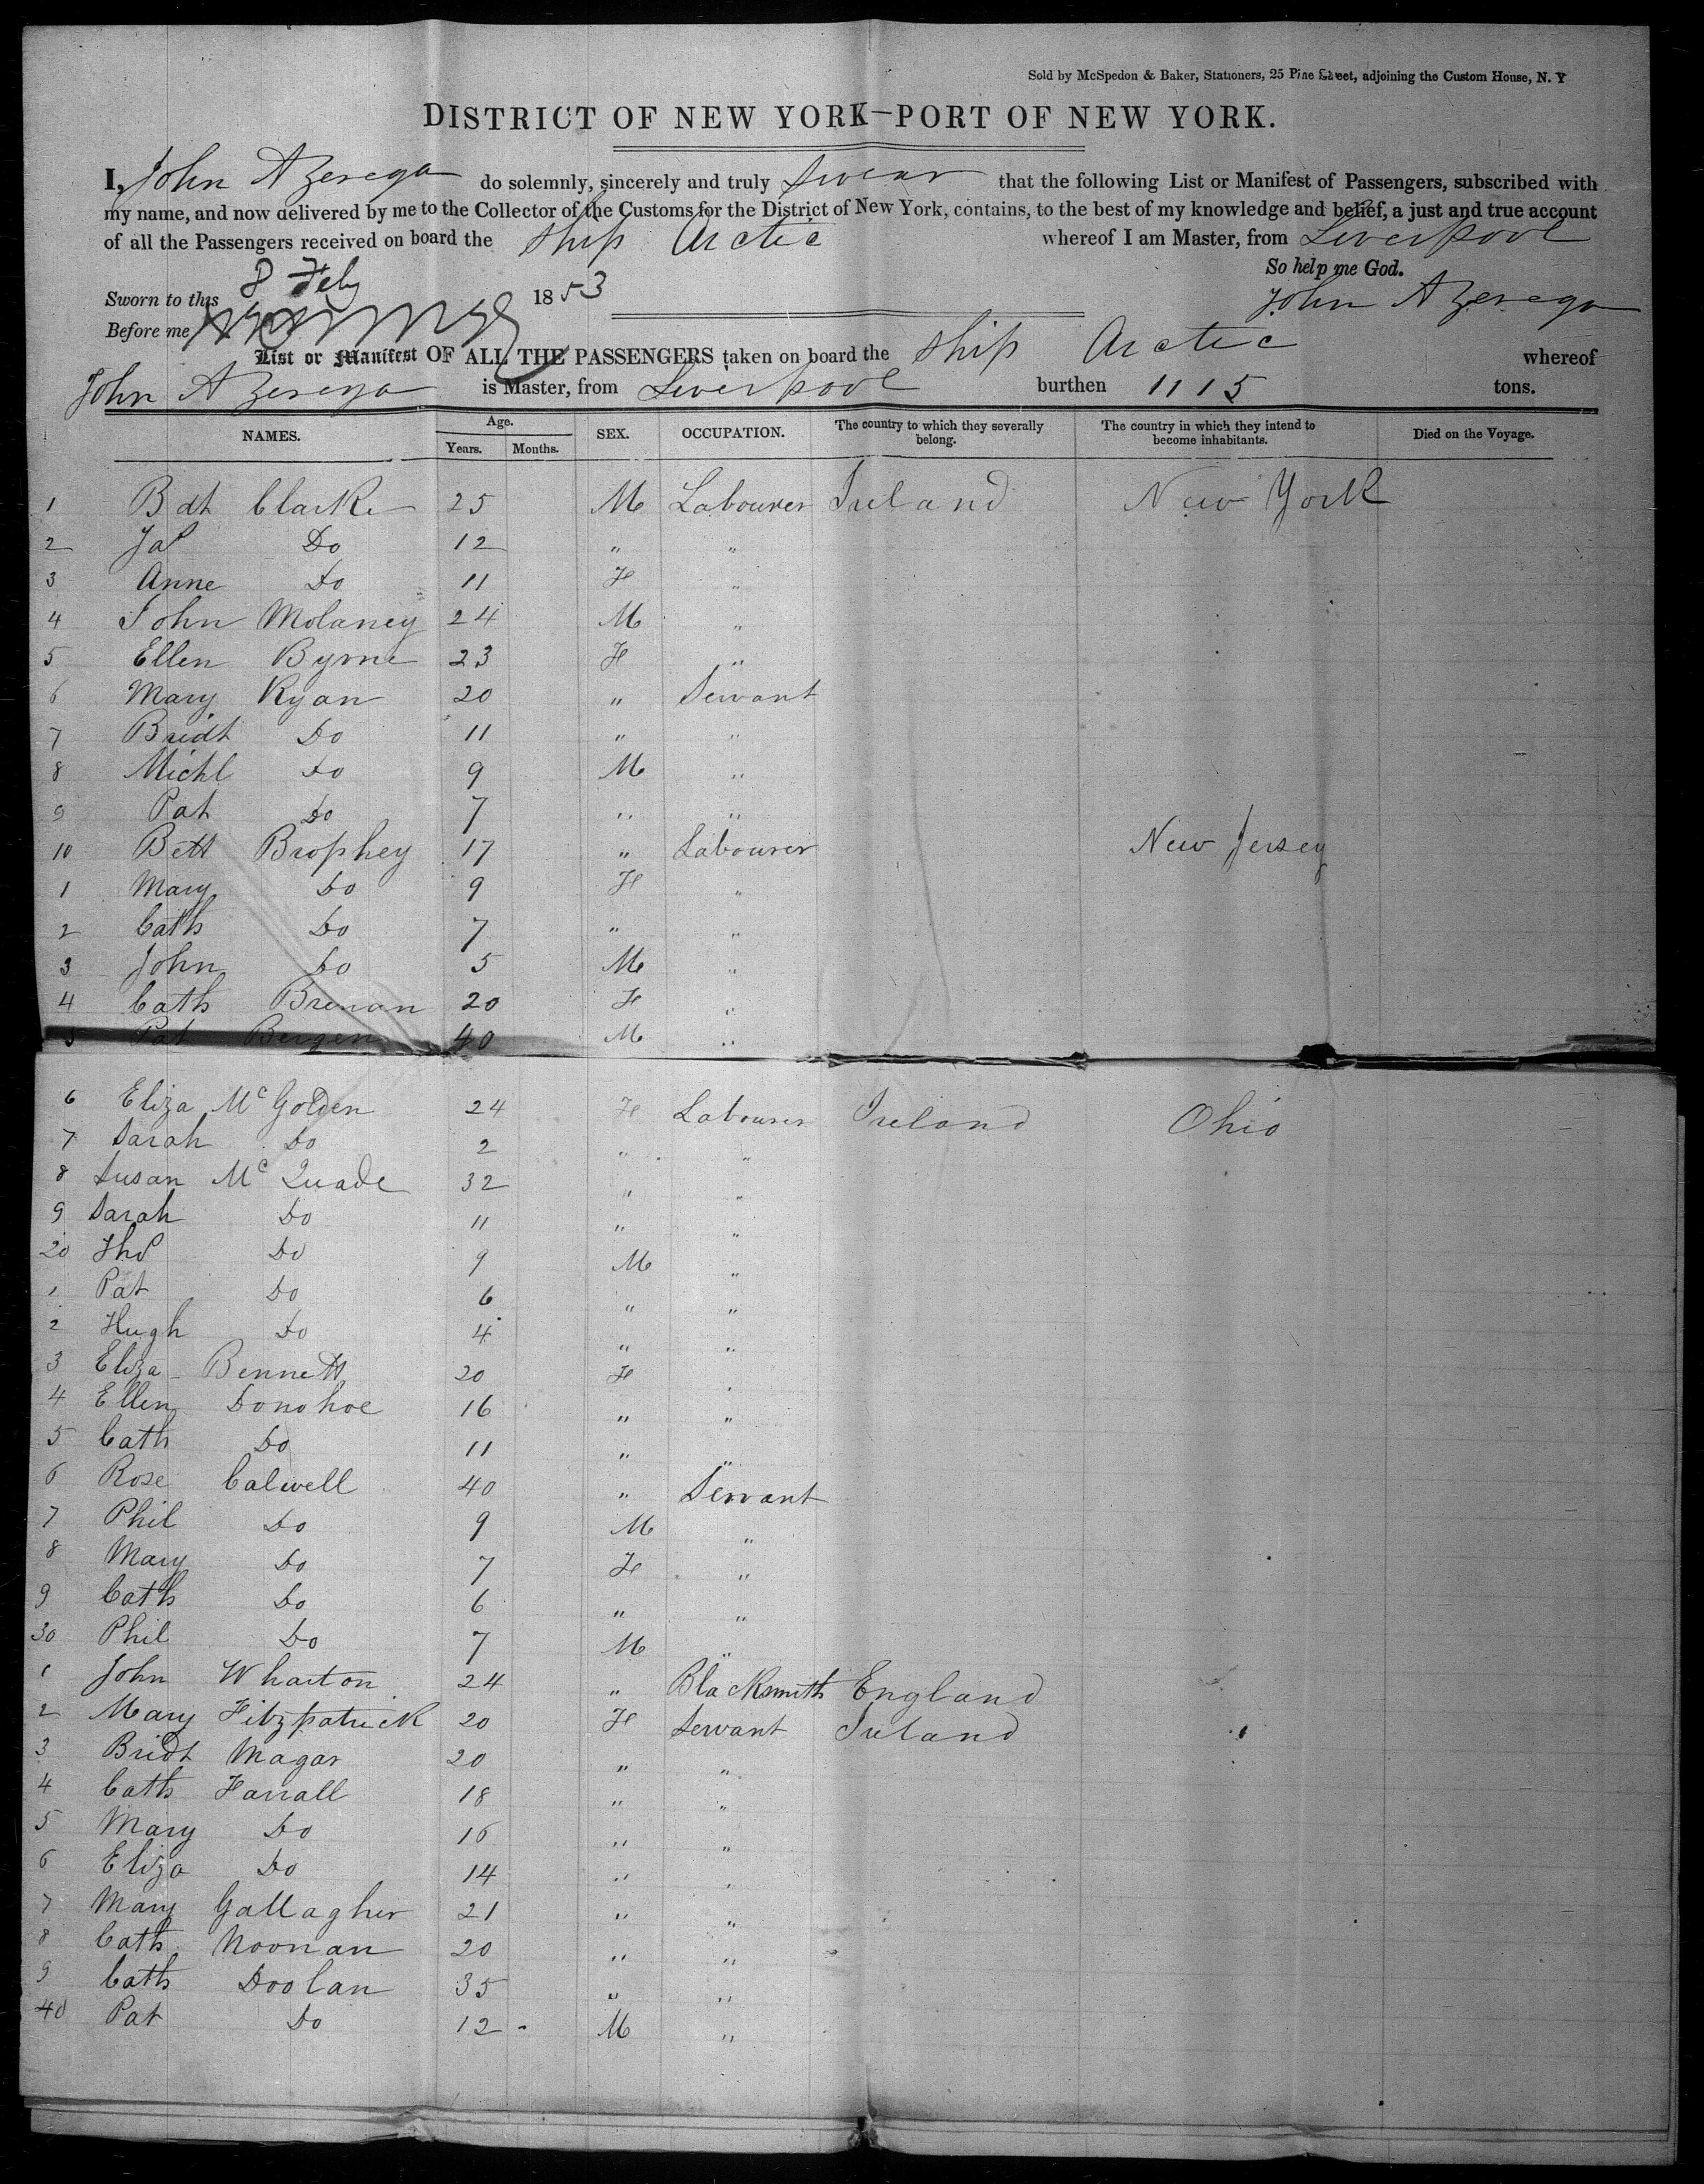 Sold by McSpedon & Baker, Stationers, 25 Pine Street, adjoining the Custom House, N. Y
DISTRICT OF NEW YORK—PORT OF NEW YORK.
I, John A Zerega do solemnly, sincerely and truly swear that the following List or Manifest of Passengers, subscribed with
my name, and now delivered by me to the Collector of the Customs for the District of New York, contains, to the best of my knowledge and belief, a just and true account
of all the Passengers received on board the ship Arctic whereof I am Master, from Liverpool
So help me God.
Sworn to this 8 Feby 1853 John A Zerega
Before me
List or Manifest OF ALL THE PASSENGERS taken on board the ship Arctic whereof
John A Zerega is Master, from Liverpool burthen 1115 tons.
NAMES. Age. Years. Months. SEX. OCCUPATION. The country to which they severally belong. The country in which they intend to become inhabitants. Died on the Voyage.
1 Bdt Clarke 25 M Labourer Ireland New York
2 Jas Do 12 " "
3 Anne Do 11 F "
4 John Molaney 24 M "
5 Ellen Byrne 23 F "
6 Mary Ryan 20 " Servant
7 Bridt Do 11 " "
8 Michl Do 9 M "
9 Pat Do 7 " "
10 Bett Brophey 17 " Labourer New Jersey
1 Mary Do 9 F "
2 Cath Do 7 " "
3 John Do 5 M "
4 Cath Brenan 20 F "
5 Pat Bergen 40 M "
6 Eliza McGolden 24 F Labourer Ireland Ohio
7 Sarah Do 2 " "
8 Susan McQuade 32 " "
9 Sarah Do 11 " "
20 Thos Do 9 M "
1 Pat Do 6 " "
2 Hugh Do 4 " "
3 Eliza Bennett 20 F "
4 Ellen Donohoe 16 " "
5 Cath Do 11 " "
6 Rose Calwell 40 " Servant
7 Phil Do 9 M "
8 Mary Do 7 F "
9 Cath Do 6 " "
30 Phil Do 7 M "
1 John Wharton 24 " Blacksmith England
2 Mary Fitzpatrick 20 F Servant Ireland
3 Bridt Magar 20 " "
4 Cath Farrall 18 " "
5 Mary Do 16 " "
6 Eliza Do 14 " "
7 Mary Gallagher 21 " "
8 Cath Noonan 20 " "
9 Cath Doolan 35 " "
40 Pat Do 12 M "